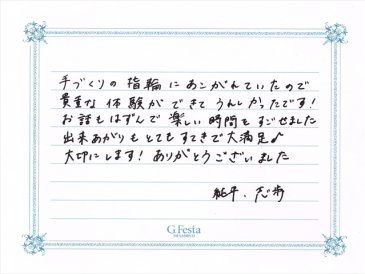 手づくりの指輪にあこがれていたので
貴重な体験ができてうれしかったです!
お話もはずんで楽しい時間をすごせました
出来あがりもとてもすてきで大満足♪
大切にします!ありがとうございました
純平・志歩
G.Festa